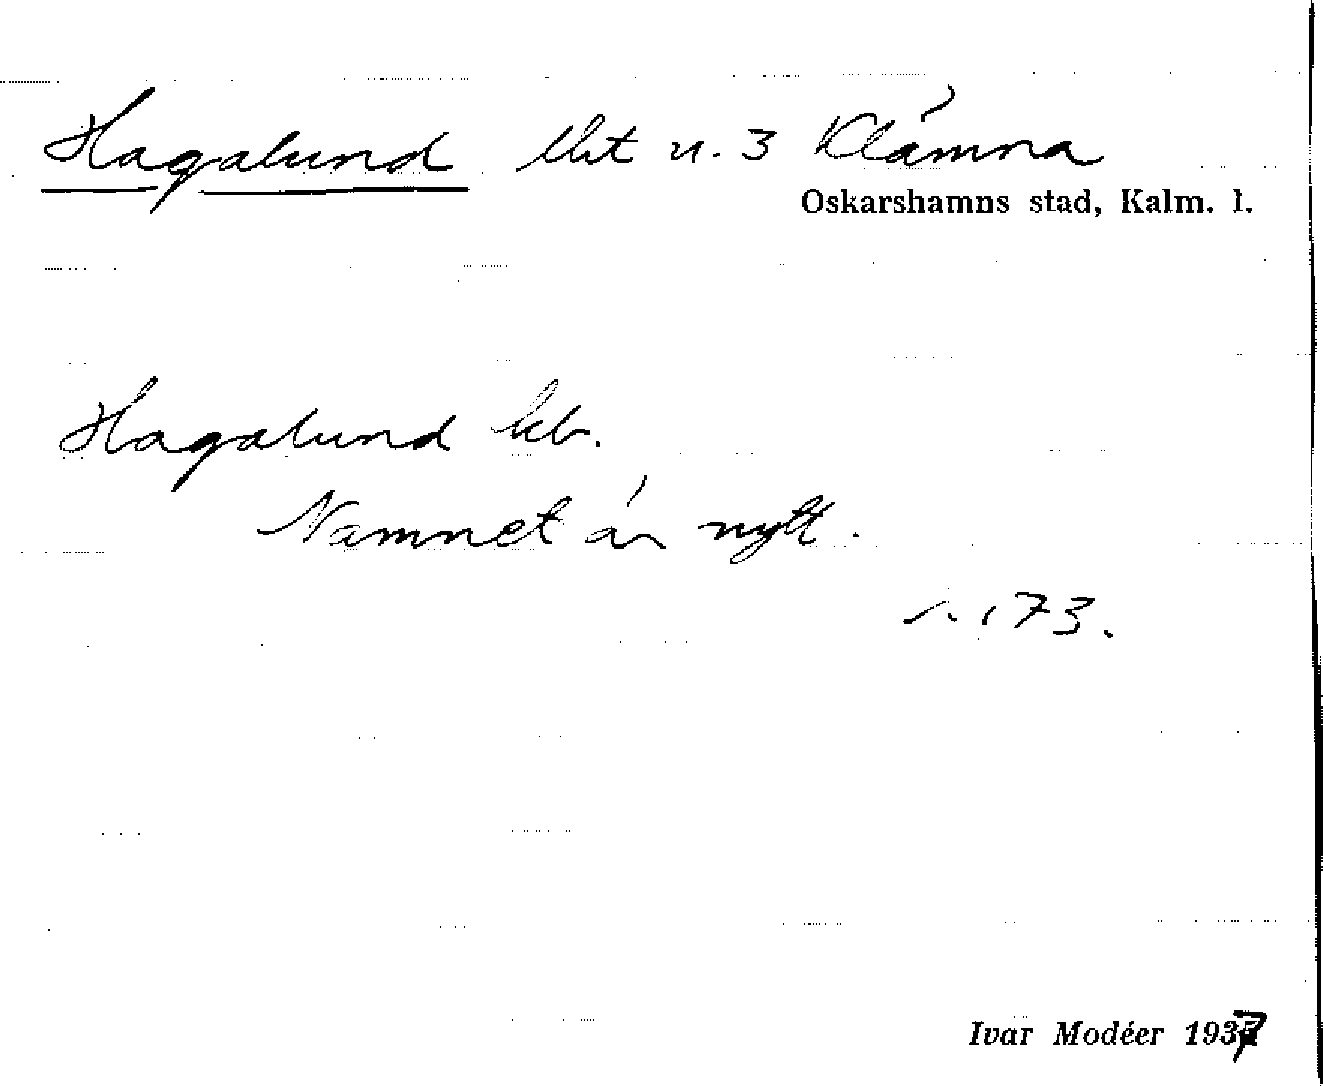 Hagalund lht u. 3 Klämna
Oskarshamns stad, Kalm. l.
Hagalund kb.
Namnet är nytt.
s. 173.
Ivar Modéer 1937